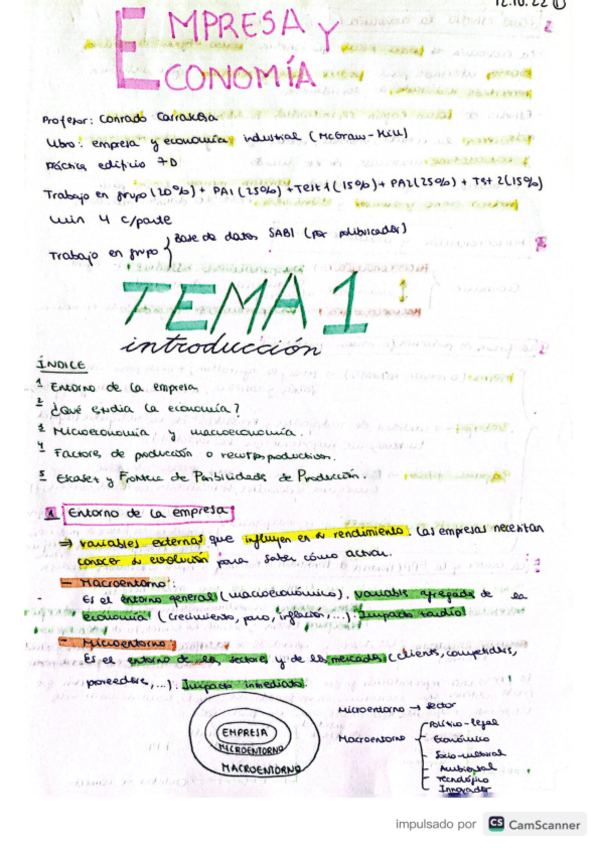 12.10.22 ①
EMPRESA Y
ECONOMÍA
Profesor: Conrado Carrascosa
Libro: empresa y economía industrial (McGraw-Hill)
Práctica edificio 7D
Trabajo en grupo (20%) + PA1 (25%) + Test 1 (15%) + PA2 (25%) + Tst 2 (15%)
Min 4 c/parte
Trabajo en grupo { Base de datos SABI (por
TEMA 1
introducción
ÍNDICE
1 Entorno de la empresa
2 ¿Qué estudia la economía?
3 Microeconomía y macroeconomía.
4 Factores de producción o recursos productivos.
5 Escasez y Frontera de Posibilidades de Producción.
1 Entorno de la empresa
→ variables externas que influyen en su rendimiento. Las empresas necesitan
conocer su evolución para saber cómo actuar.
- Macroentorno:
Es el entorno general (macroeconómico), variables agregadas de la
economía (crecimiento, paro, inflación,...). Impacto tardío
- Microentorno:
Es el entorno de los sectores y de los mercados (clients, competidores,
proveedores,...). Impacto inmediato.
EMPRESA
MICROENTORNO
MACROENTORNO
Microentorno → Sector
Macroentorno { Político-legal
Económico
Socio-cultural
Ambiental
Tecnológico
Innovador
impulsado por CS CamScanner